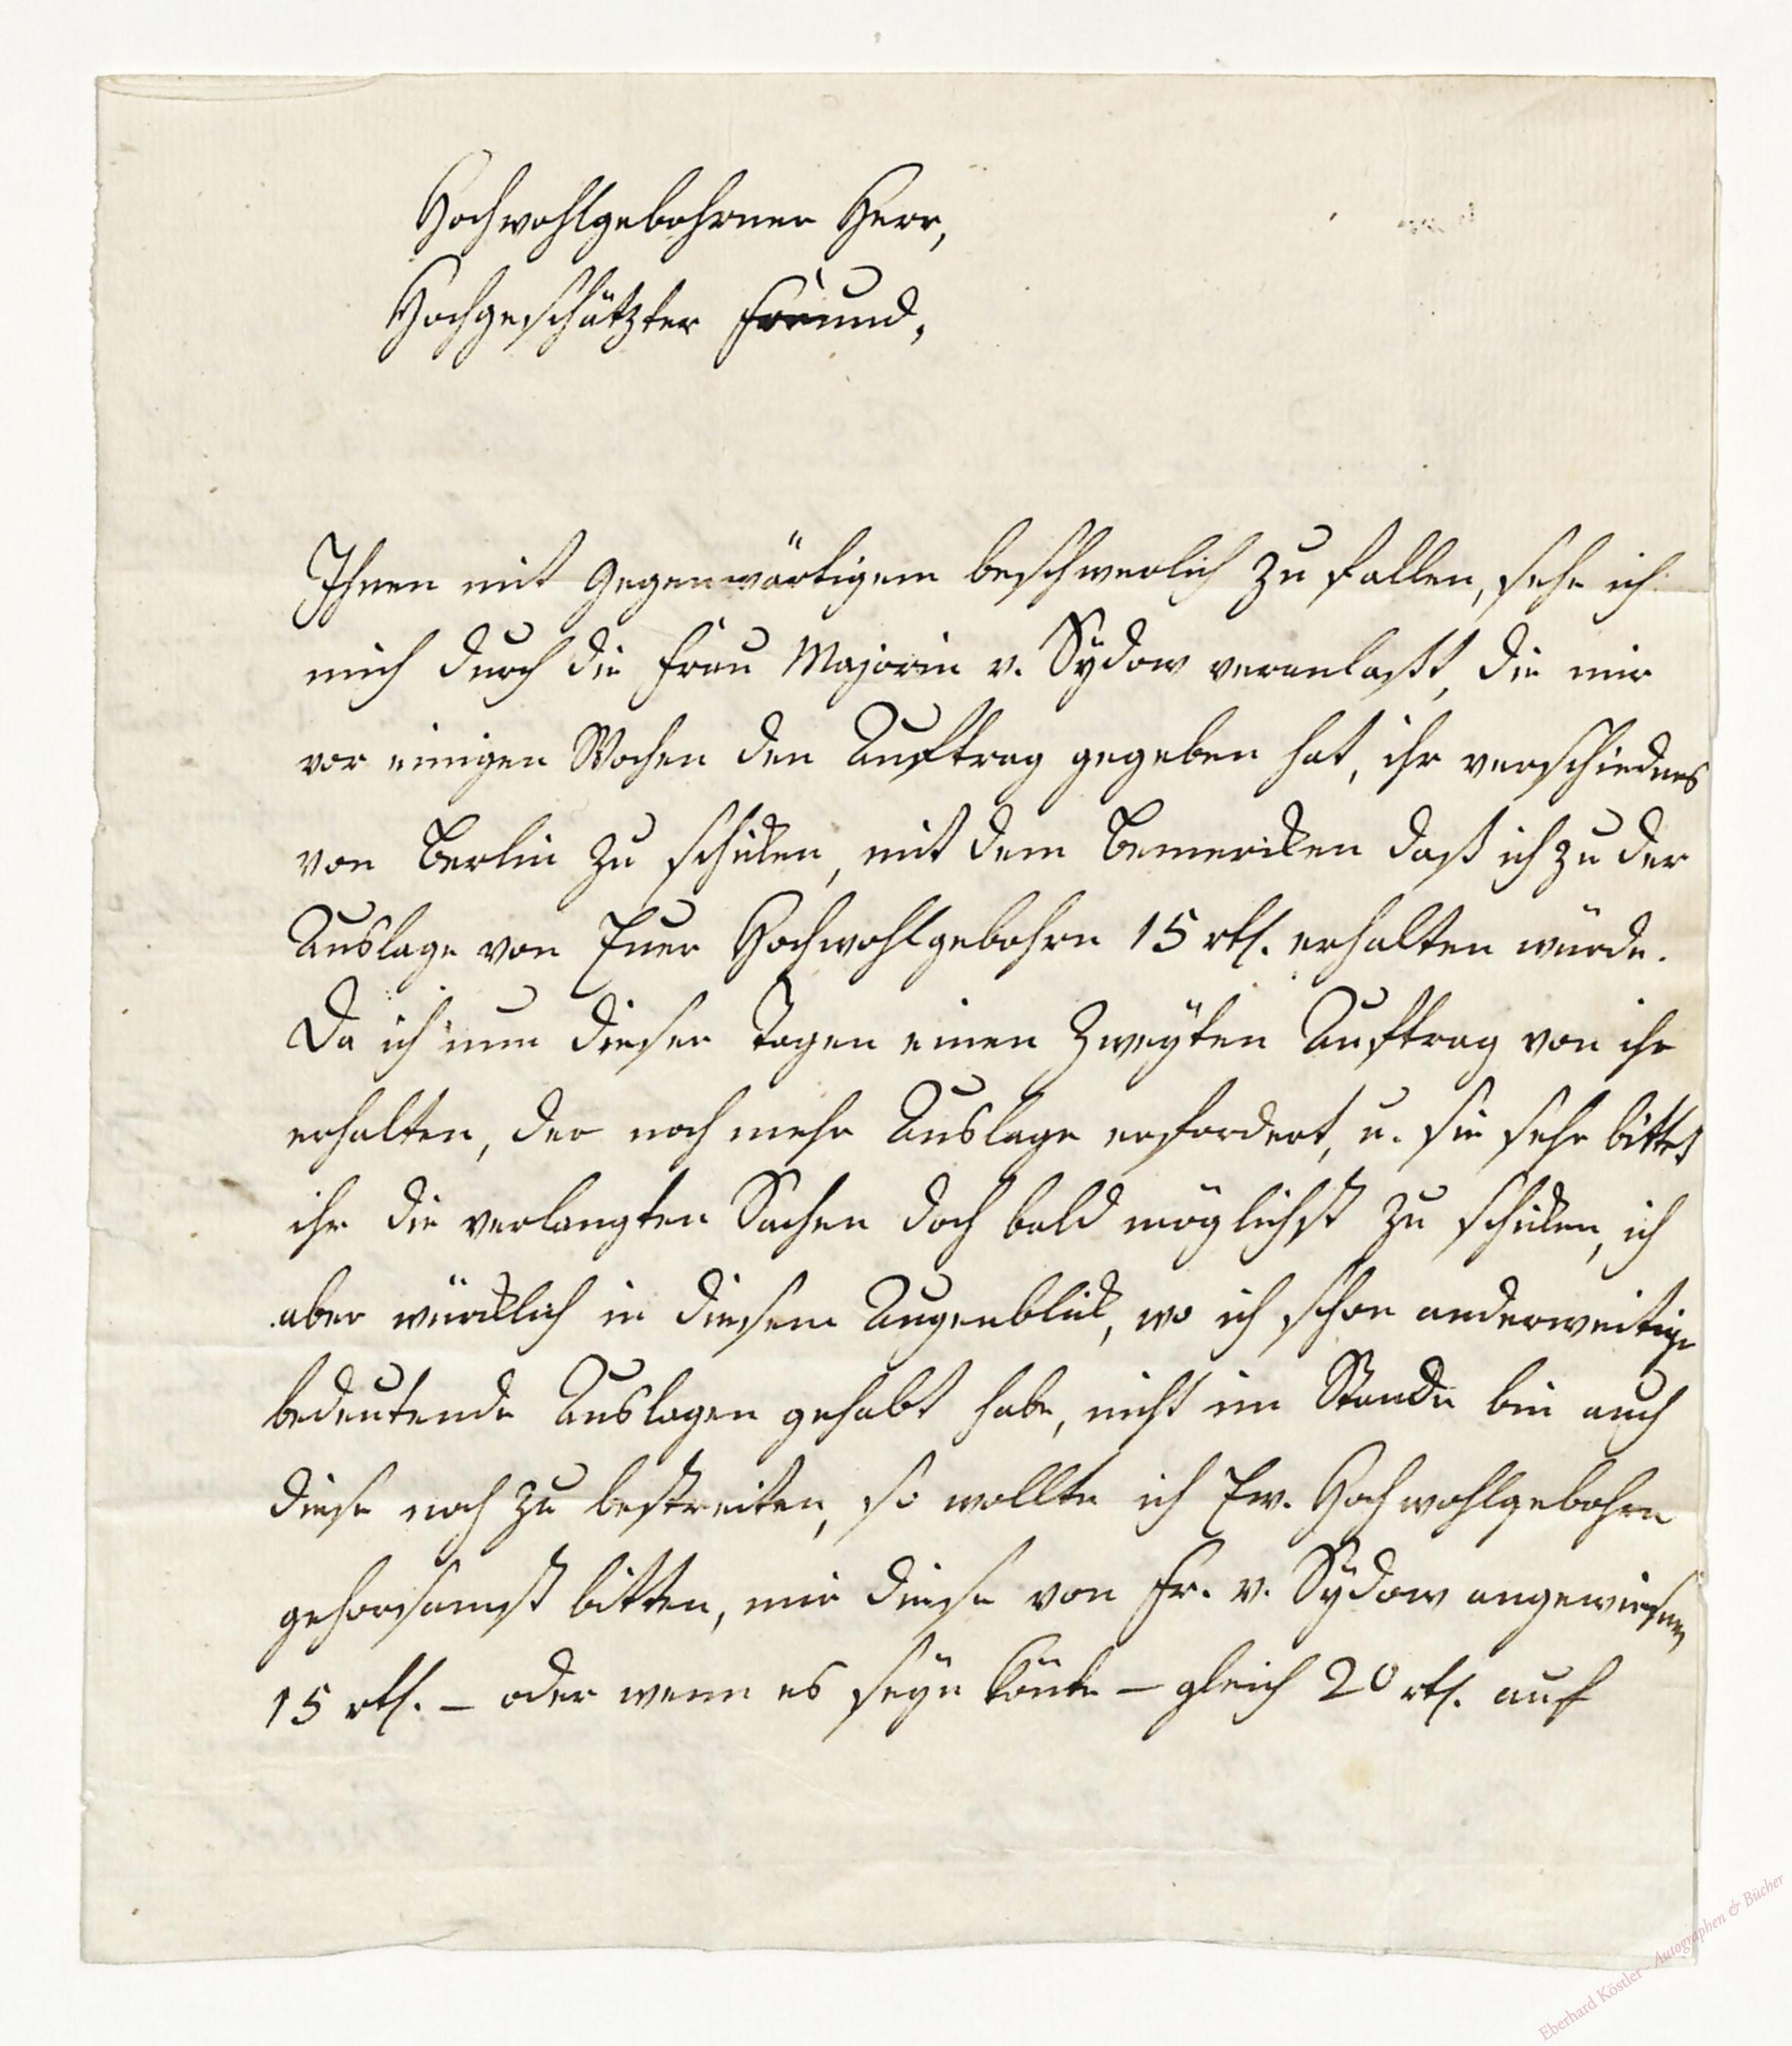 Hochwohlgebohrner Herr,
Hochgeschätzter Freund,
Ihnen mit Gegenwärtigem beschwerlich zu fallen, sehe ich
mich durch die Frau Majorin v. Sÿdow veranlaßt, die mir
vor einigen Wochen den Auftrag gegeben hat, ihr verschiednes
von Berlin zu schiken, mit dem Bemerken daß ich zu der
Auslage von Euer Hochwohlgebohrn 15 rth. erhalten würde.
Da ich nun dieser Tagen einen Zweÿten Auftrag von ihr
erhalten, der noch mehr Auslage erfordert, u. sie sehr bittet
ihr die verlangten Sachen doch bald möglichst zu schiken, ich
aber würklich in diesem Augenblik, wo ich schon anderweitige
bedeutende Auslagen gehabt habe, nicht im Stande bin auch
diese noch zu bestreiten, so wollte ich Ew. Hochwohlgebohrn
gehorsamst bitten, mir diese von Fr. v. Sÿdow angewiesnen
15 rth. – oder wenn es seÿn könte – gleich 20 rth. auf
Eberhard Köstler - Autographen & Bücher